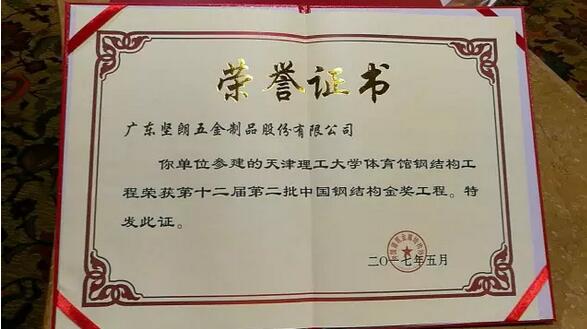 荣誉证书
广东坚朗五金制品股份有限公司
你单位参建的天津理工大学体育馆钢结构工
程荣获第十二届第二批中国钢结构金奖工程。特
发此证。
二〇一七年五月